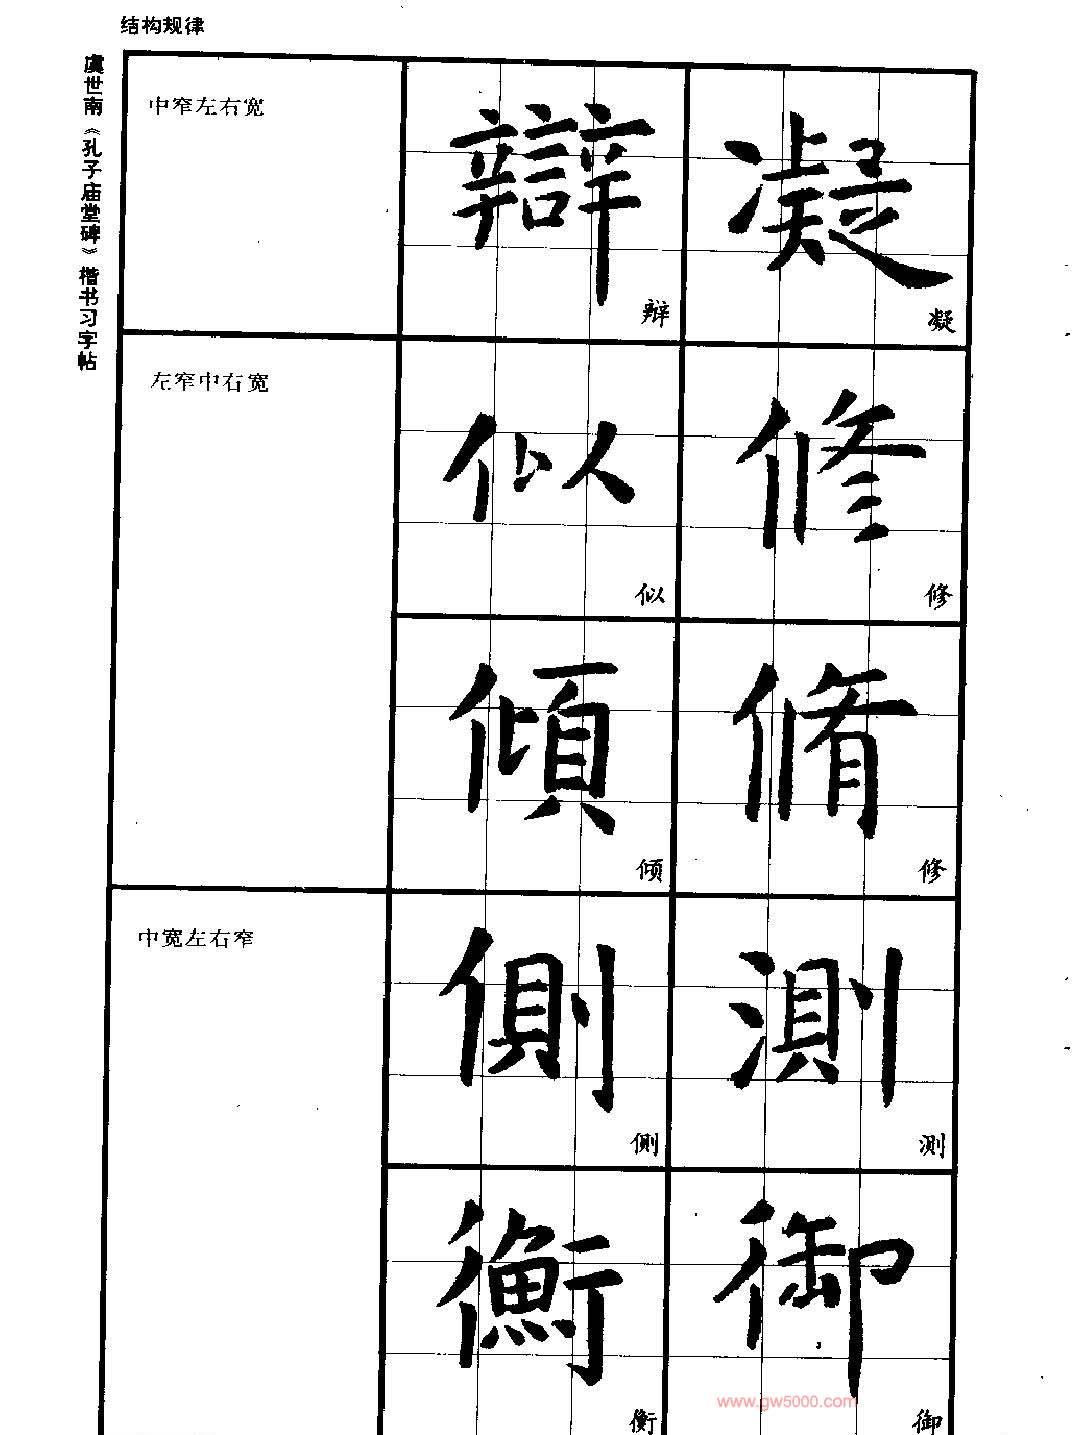 结构规律
虞世南《孔子庙堂碑》楷书习字帖
中窄左右宽
辯 凝
辩 凝
左窄中右宽
似 修
似 修
傾 脩
倾 修
中宽左右窄
側 測
侧 测
衡 御
衡 御
www.gw5000.com